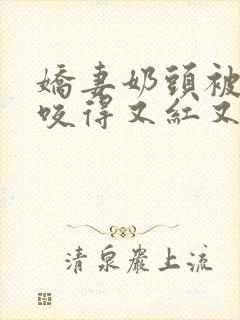 嬌妻奶頭被
咬得又紅又
清泉巖上流